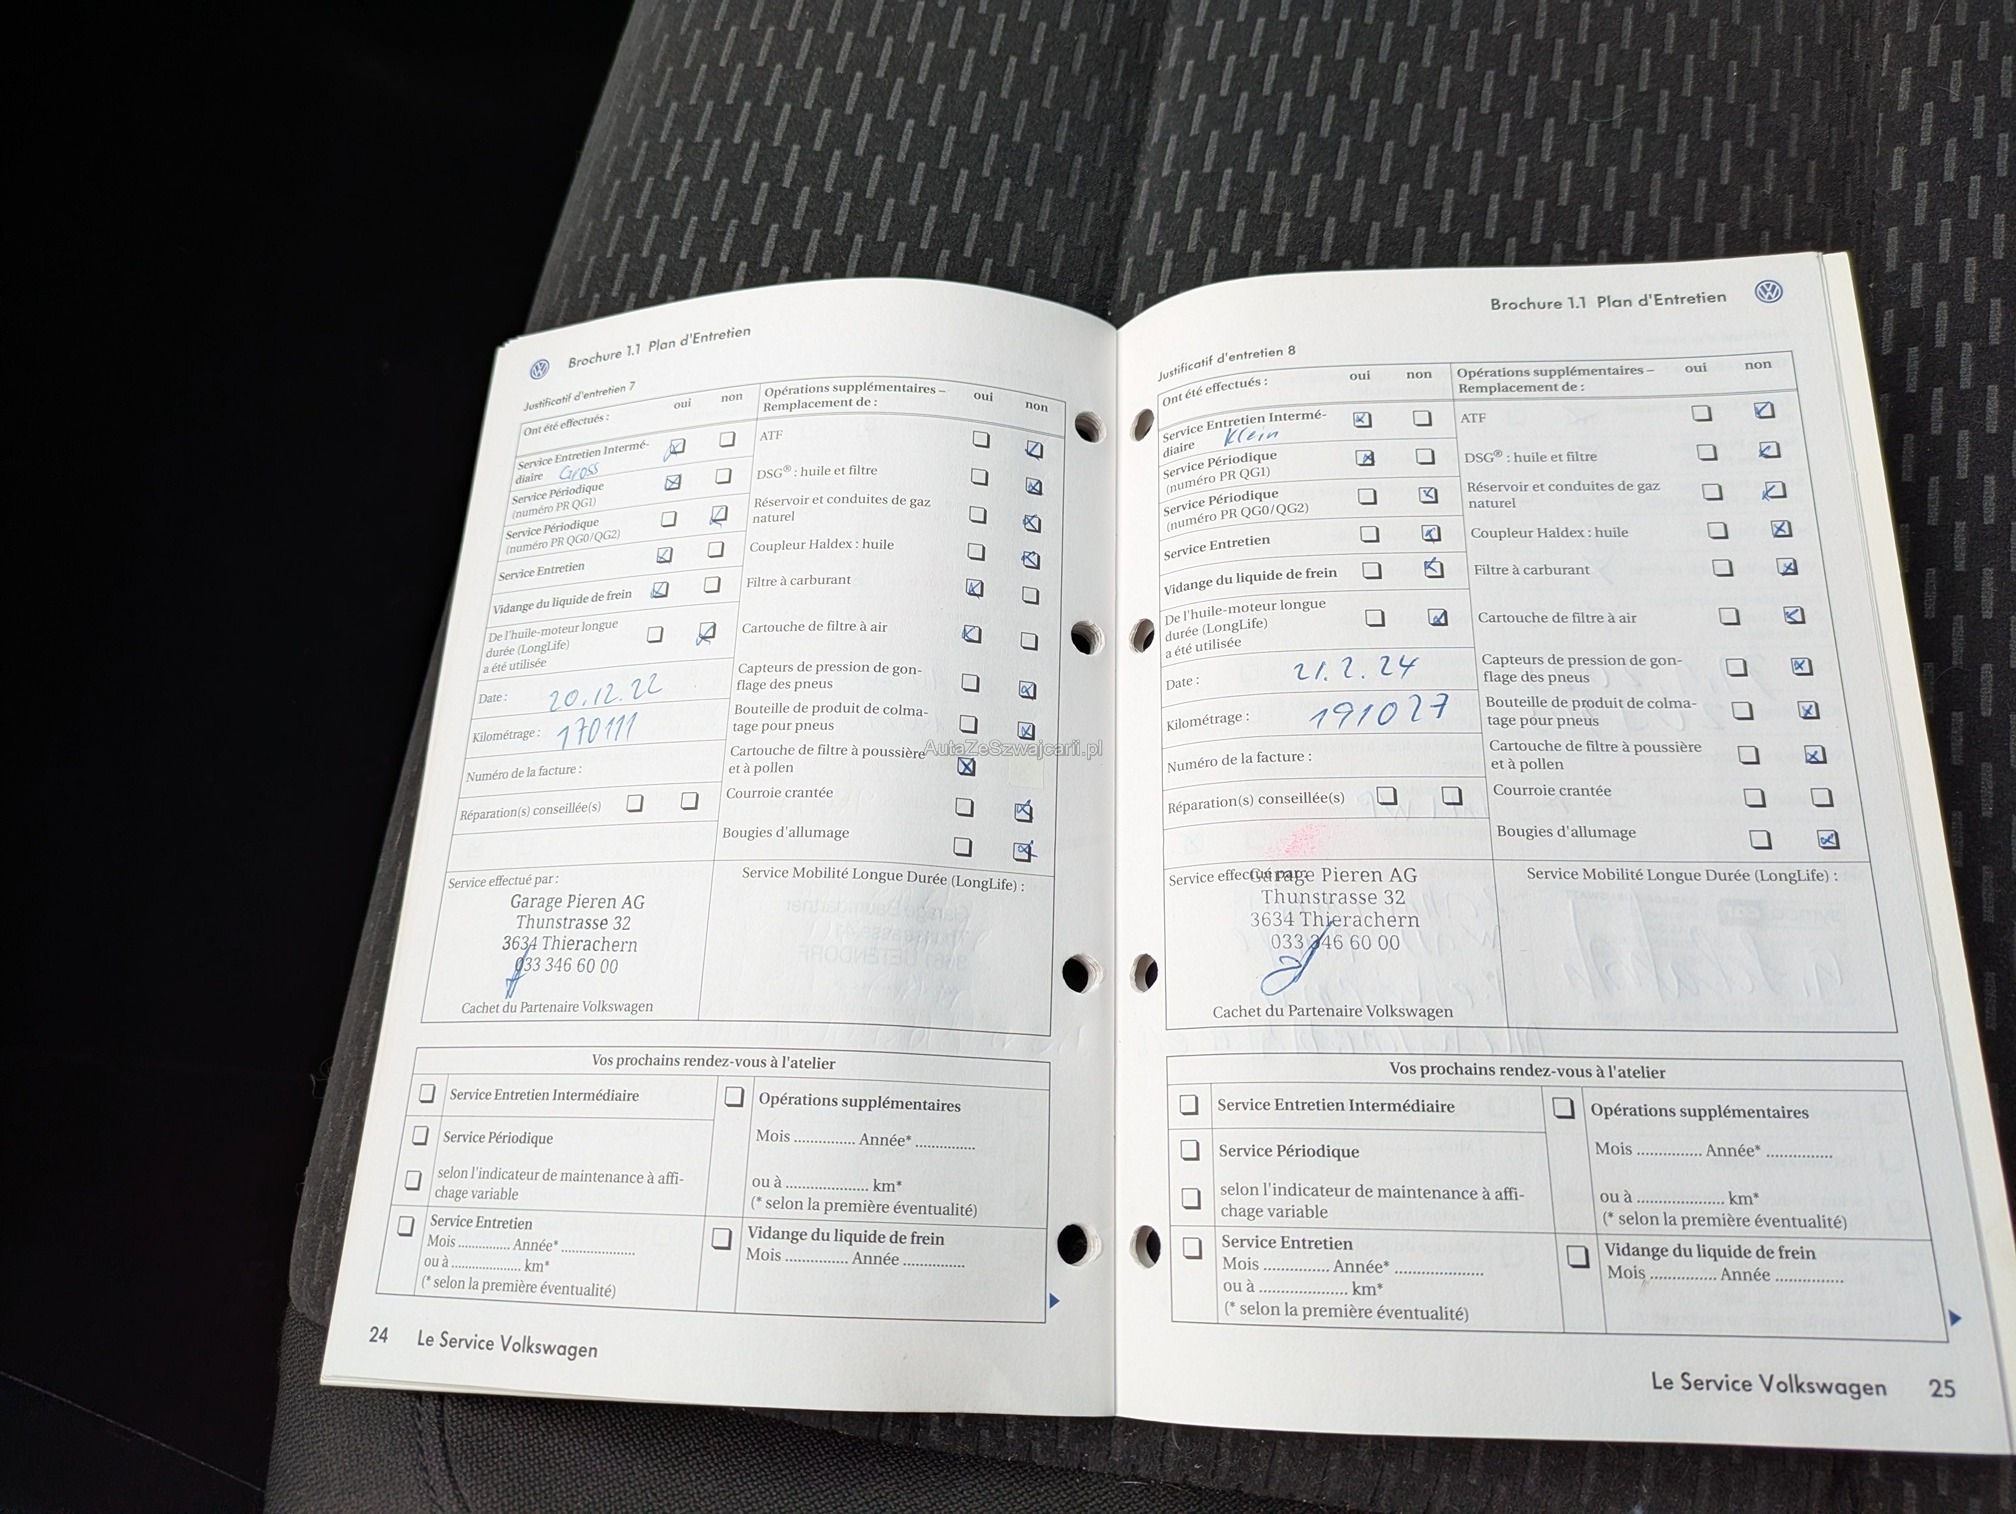 Brochure 1.1 Plan d'Entretien
Justificatif d'entretien 7
Ont été effectués :
oui
non
Service Entretien Intermé-
diaire Gross
Service Périodique
(numéro PR QG1)
Service Périodique
(numéro PR QG0/QG2)
Service Entretien
Vidange du liquide de frein
De l'huile-moteur longue
durée (LongLife)
a été utilisée
Date : 20.12.22
Kilométrage : 170111
Numéro de la facture :
Réparation(s) conseillée(s)
Opérations supplémentaires –
Remplacement de :
oui
non
ATF
DSG® : huile et filtre
Réservoir et conduites de gaz
naturel
Coupleur Haldex : huile
Filtre à carburant
Cartouche de filtre à air
Capteurs de pression de gon-
flage des pneus
Bouteille de produit de colma-
tage pour pneus
Cartouche de filtre à poussière
et à pollen
Courroie crantée
Bougies d'allumage
Service effectué par :
Garage Pieren AG
Thunstrasse 32
3634 Thierachern
033 346 60 00
Cachet du Partenaire Volkswagen
Service Mobilité Longue Durée (LongLife) :
Vos prochains rendez-vous à l'atelier
Service Entretien Intermédiaire
Service Périodique
selon l'indicateur de maintenance à affi-
chage variable
Service Entretien
Mois ............... Année* .....................
ou à .................... km*
(* selon la première éventualité)
Opérations supplémentaires
Mois ............... Année* ...............
ou à .................... km*
(* selon la première éventualité)
Vidange du liquide de frein
Mois ............... Année ...............
24 Le Service Volkswagen
Brochure 1.1 Plan d'Entretien
Justificatif d'entretien 8
Ont été effectués :
oui
non
Service Entretien Intermé-
diaire Klein
Service Périodique
(numéro PR QG1)
Service Périodique
(numéro PR QG0/QG2)
Service Entretien
Vidange du liquide de frein
De l'huile-moteur longue
durée (LongLife)
a été utilisée
Date : 21.2.24
Kilométrage : 191027
Numéro de la facture :
Réparation(s) conseillée(s)
Opérations supplémentaires –
Remplacement de :
oui
non
ATF
DSG® : huile et filtre
Réservoir et conduites de gaz
naturel
Coupleur Haldex : huile
Filtre à carburant
Cartouche de filtre à air
Capteurs de pression de gon-
flage des pneus
Bouteille de produit de colma-
tage pour pneus
Cartouche de filtre à poussière
et à pollen
Courroie crantée
Bougies d'allumage
Service effectué par :
Garage Pieren AG
Thunstrasse 32
3634 Thierachern
033 346 60 00
Cachet du Partenaire Volkswagen
Service Mobilité Longue Durée (LongLife) :
Vos prochains rendez-vous à l'atelier
Service Entretien Intermédiaire
Service Périodique
selon l'indicateur de maintenance à affi-
chage variable
Service Entretien
Mois ............... Année* .....................
ou à .................... km*
(* selon la première éventualité)
Opérations supplémentaires
Mois ............... Année* ...............
ou à .................... km*
(* selon la première éventualité)
Vidange du liquide de frein
Mois ............... Année ...............
Le Service Volkswagen 25
AutaZeSzwajcarii.pl